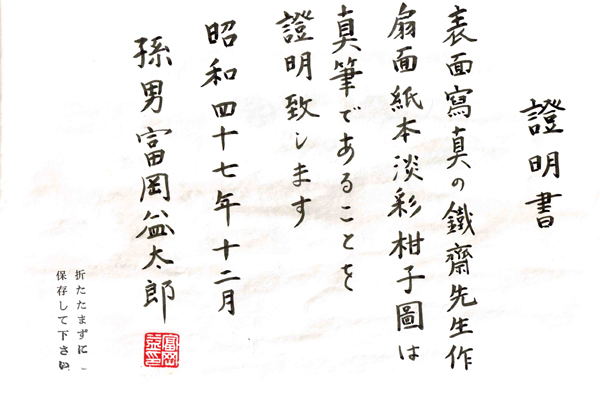 證明書
表面寫真の鐵齋先生作
扇面紙本淡彩柑子圖は
真筆であることを
證明致します
昭和四十七年十二月
孫男富岡益太郎
富岡益印
折たたまずに
保存して下さい